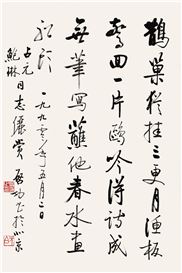 鵲巢猶挂三更月漁板
驚回一片鷗吟得詩成
無筆寫蘸他春水畫
船頭 一九九〇年五月二日
占元
鮑琳 同志儷賞 启功 於北京